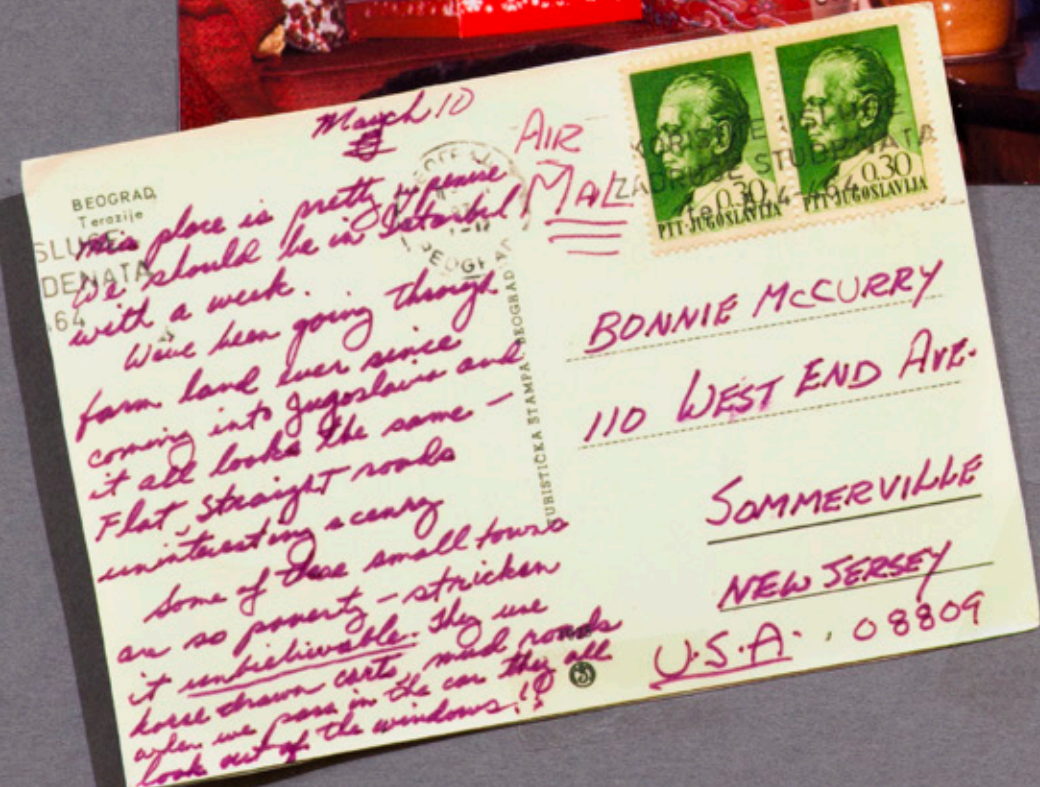 March 10
BEOGRAD
Terazije
SLUŽE
DENATA
64
This place is pretty expensive
We should be in Istanbul
with a week.
Weve been going through
farm land ever since
coming into Jugoslavia and
it all looks the same –
Flat, straight roads
uninteresting scenry
Some of these small towns
are so poverty – stricken
it unbielievable. They use
horse drawn carts, mud roads
when we pass in the car they all
look out of the windows.!!
TURISTIČKA ŠTAMPA, BEOGRAD
BEOGRAD
AIR
MAIL
KORISTITE
ZADRUGE STUDENATA
0.30
PTT-JUGOSLAVIJA
0.30
PTT-JUGOSLAVIJA
BONNIE MCCURRY
110 WEST END AVE.
SOMMERVILLE
NEW JERSEY
U.S.A. 08809